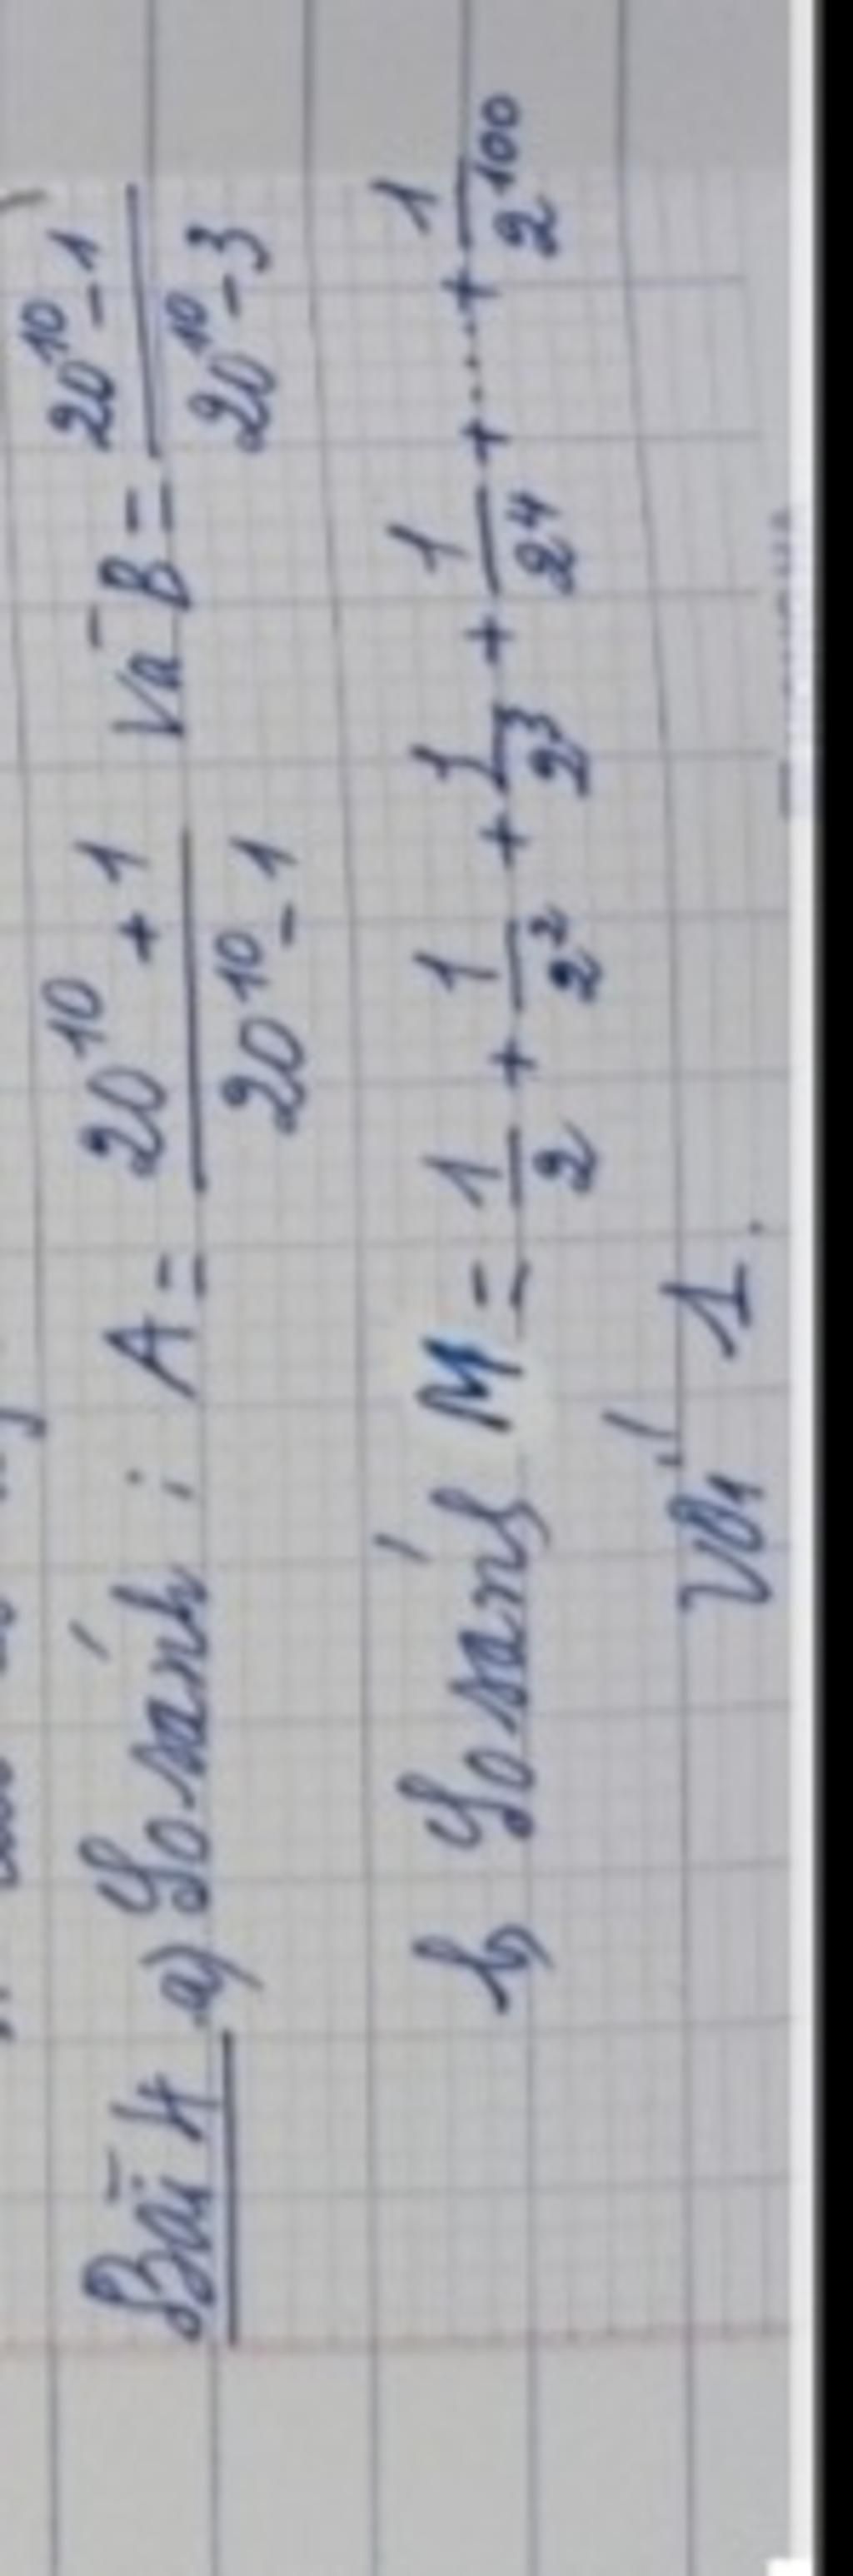 Bài 4 a) So sánh : A = \frac{20^{10} + 1}{20^{10} - 1} và B = \frac{20^{10} - 1}{20^{10} - 3}
b) So sánh M = \frac{1}{2} + \frac{1}{2^2} + \frac{1}{2^3} + \frac{1}{2^4} + ..... + \frac{1}{2^{100}}
với 1.